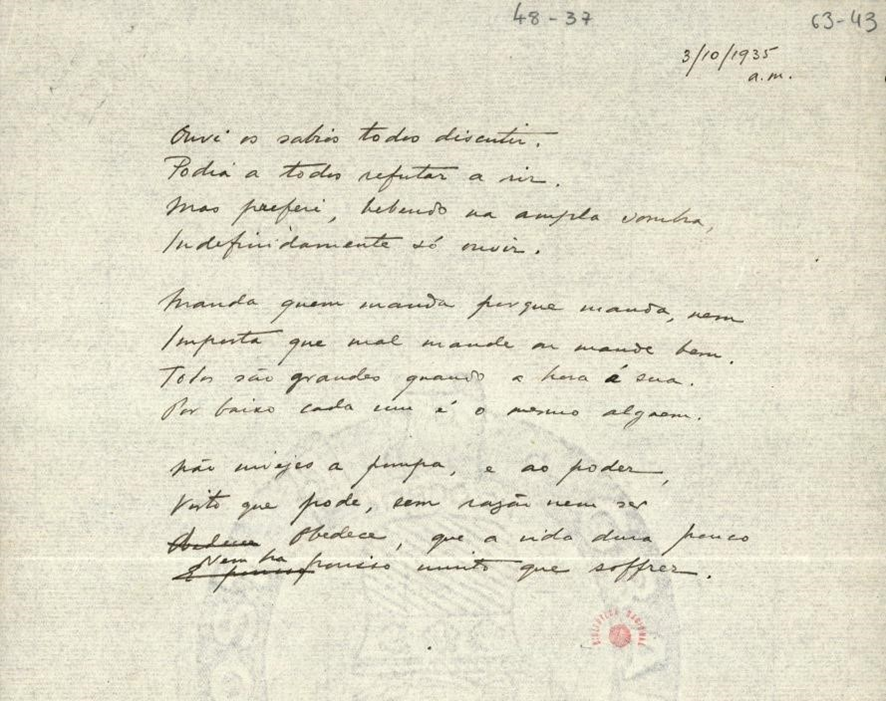 48-37
63-43
3/10/1935
a.m.
Ouvi os sabios todos discutir.
Podia a todos refutar a rir.
Mas preferi, bebendo na ampla sombra,
Indefinidamente só ouvir.
Manda quem manda porque manda, nem
Importa que mal mande ou mande bem.
Todos são grandes quando a hora é sua.
Por baixo cada um é o mesmo alguem.
Não invejo a pompa, e ao poder,
Visto que pode, sem razão nem ser
Obedece Obedece, que a vida dura pouco
Nem ha
É preciso por isso muito que soffrer.
BIBLIOTECA NACIONAL